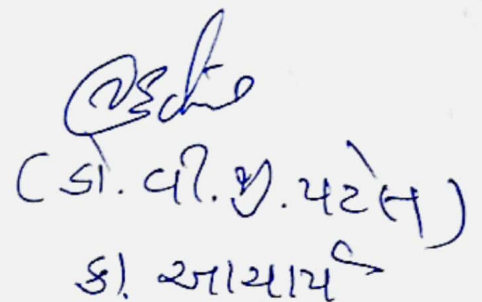 (ડો. વી. જી. પટેલ)
કા. આચાર્ય